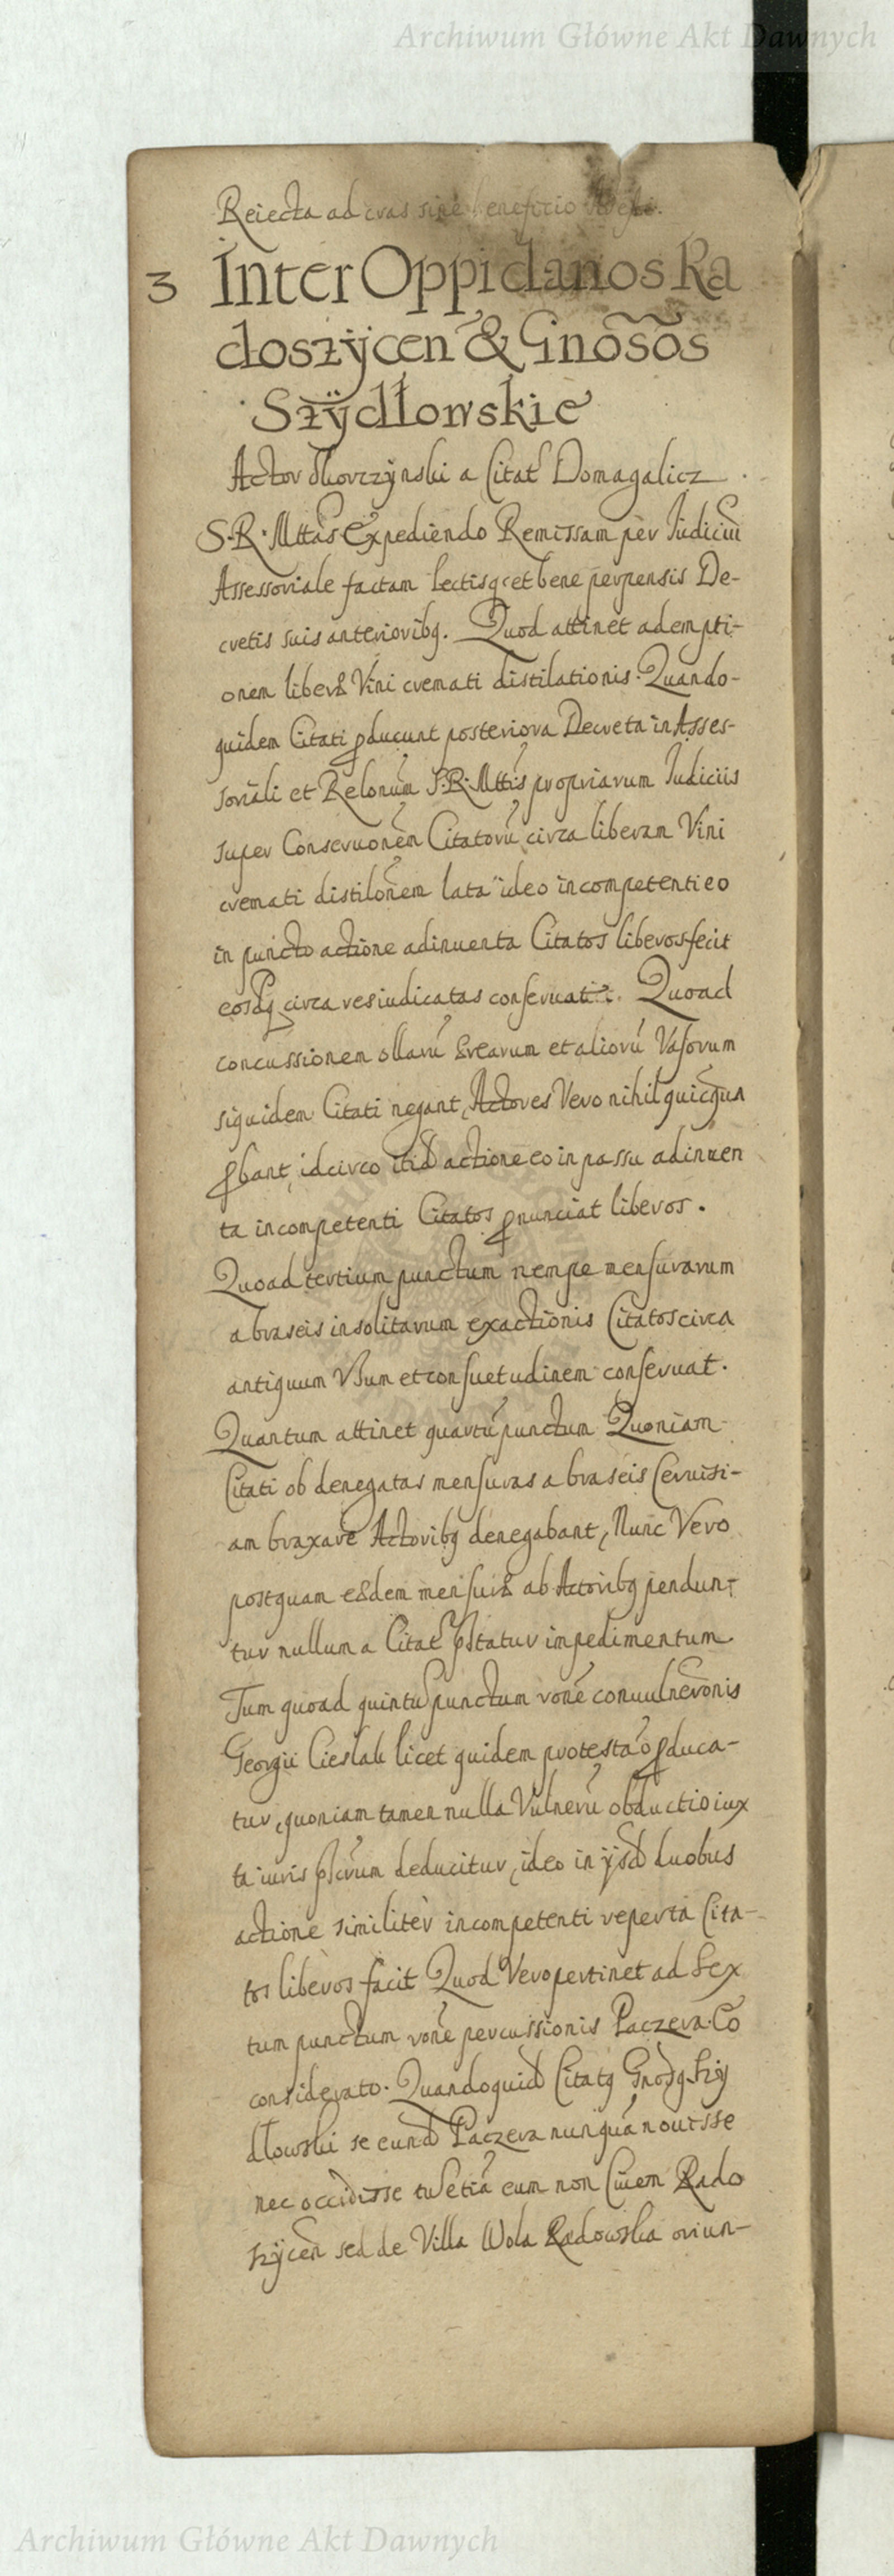 Archiwum Główne Akt Dawnych
Reiecta ad cras sine beneficio
3 Inter Oppidanos Ra
doszÿcen & Gnōsōs
Szÿdłowskie
Actor Skorczÿnski a Citat Domagalicz
S. R. Mttas Expediendo Remissam per Iudiciū
Assessoriale factam lectisq et bene perpensis De-
cretis suis anterioribq. Quod attinet adempti-
onem liberæ Vini cremati distilationis. Quando-
quidem Citati producunt posteriora Decreta in Asses-
soriali et Relonum S. R. Mttis propriarum Iudiciis
super Conseruonem Citatorū circa liberam Vini
cremati distilonem lata ideo incompetenti eo
in puncto actione adinuenta Citatos liberos fecit
eosdq circa res iudicatas conseruat. Quoad
concussionem ollarū ærearum et aliorū Vasorum
siquidem Citati negant, Actores Vero nihil quicqua
probant, idcirco itid actione eo in passu adinuen
ta incompetenti Citatos pronunciat liberos.
Quoad tertium punctum nempe mensurarum
a braseis insolitarum exactionis Citatos circa
antiquum Vsum et consuetudinem conseruat.
Quantum attinet quartū punctum Quoniam
Citati ob denegatas mensuras a braseis Ceruisi-
am braxare Actoribq denegabant, Nunc Vero
postquam eædem mensuræ ab Actoribq pendun-
tur nullum a Citat pstatur impedimentum
Tum quoad quintū punctum rone conuulneronis
Georgii Cieslak licet quidem protestao produca-
tur, quoniam tamen nulla Vulnerū obductio iux
ta iuris pscrum deducitur, ideo in ijsd duobus
actione similiter incompetenti reperta Cita-
tos liberos facit Quod Vero pertinet ad Sex
tum punctum rone percussionis Paczera. Eo
considerato. Quandoquid Citatq Gnosq Szÿ
dłowski se eund Paczera nunquā nouisse
nec occidisse tu Etiā eum non Ciuem Rado
szÿcen sed de Villa Wola Radowska oriun-
Archiwum Główne Akt Dawnych